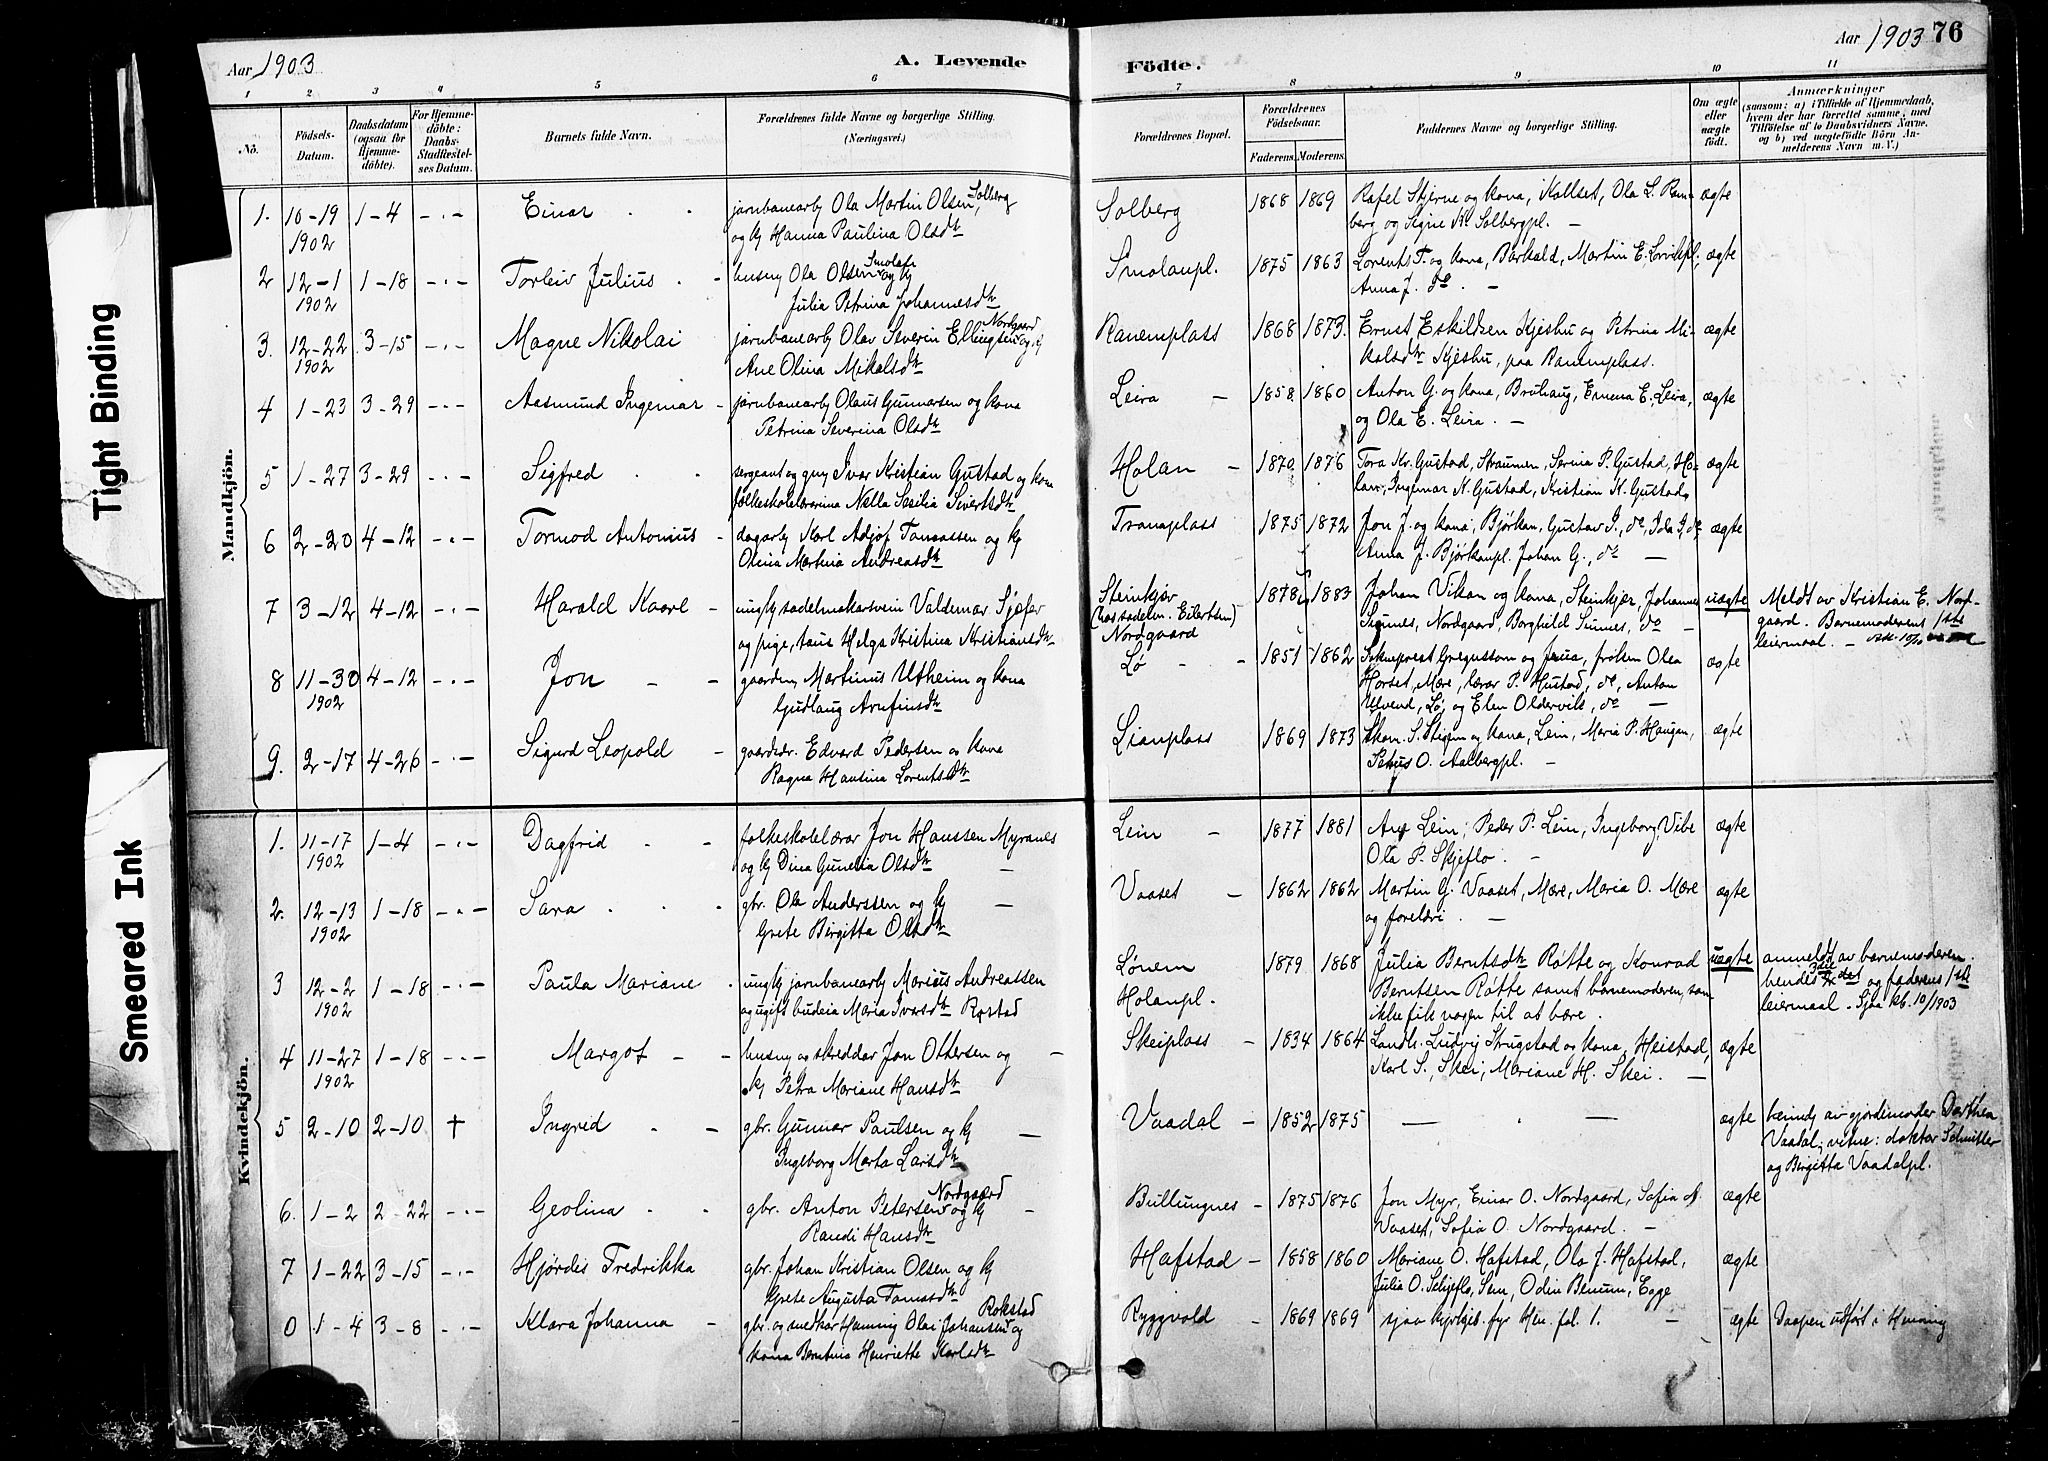 Tight Binding
Smeared Ink
Aar 1903
A. Levende
Födte.
Aar 1903 76
1 2 3 4 5 6 7 8 9 10 11
No.
Födsels-
Datum.
Daabsdatum
(ogsaa for
Hjemme-
döbte).
For Hjemme-
döbte:
Daabs-
Stadfæstel-
ses Datum.
Barnets fulde Navn.
Forældrenes fulde Navne og borgerlige Stilling.
(Næringsvei.)
Forældrenes Bopæl.
Forældrenes
Födselsaar.
Faderens. Moderens.
Faddernes Navne og borgerlige Stilling.
Om ægte
eller
uægte
födt.
Anmærkninger
(saasom: a) i Tilfælde af Hjemmedaab,
hvem der har forrettet samme, med
Tilföielse af to Daabsvidners Navne,
og b) ved uægtefödte Börn An-
melderens Navn m. V.)
Mandkjön.
1. 10-19 1-4 -"- Einar jarnbanearb Ola Martin Olsen, Solberg Solberg 1868 1869 Rafel Stjerne og kona, Kollset, Ola L. Ram- ægte
1902 og kj Hanna Paulina Olsdtr berg og Signe K. Solbergpl. –
2 12-1 1-18 -"- Torleiv Julius husm Ola Olsen Smolan og kj Smolanpl. 1875 1863 Lorents T. og kona, Barkald, Martin E. Lorvikpl, ægte
1902 Julia Petrina Johannesdtr Anna J. do. –
3. 12-22 3-15 -"- Magne Nikolai jarnbanearb Olav Severin Ellingsen Nordgaard og kj Ranemplass 1868 1873. Ernst Eskildsen Kjeshu og Petrina Mi- ægte
1902 Ane Olina Mikalsdtr kalsdtr Kjeshu, paa Ranemplass.
4 1-23 3-29 -"- Aasmund Ingemar jarnbanearb Olaus Gunnarsen og kona Leira – 1858 1860 Anton G. og kona, Bruhaug, Emma E. Leira, ægte
Petrina Severina Olsdtr og Ola E. Leira. –
5 1-27 3-29 -"- Sigfred sergeant og gm Ivar Kristian Gustad og kona Holan – 1870 1876 Tora Kr. Gustad, Straumen, Serina P. Gustad, Ho- ægte
folkeskolelærarina Nella Secilia Sivertsdtr lan, Ingemar K. Gustad, Kristian K. Gustad,
6 2-20 4-12 -"- Tormod Antonius dagarb Karl Adjof Tomassen og kj Tranaplass 1875 1872 Jon J. og kona, Bjørkan, Gustav J., do, Ida J, do ægte
Olina Martina Andreasdtr Anna J. Bjørkanpl. Johan G., do –
7 3-12 4-12 -"- Harald Kaarl ungkj sadelmakarsvein Valdemar Sjøfar Steinkjær 1878 1883 Johan Vikan og kona, Steinkjær, Johannes uægte Meldt av Kristian E. Nord-
og pige, taus Helga Kristina Kristiansdtr (hos sadelm. Eilertsen) Nordgaard Sunnes, Nordgaard, Borghild Sunnes, do – gaard. Barnemoderens 1ste
leiermaal. –
8 11-30 4-12 -"- Jon – – gaardm Martinus Utheim og kona Lø – – 1851 1862 Sokneprest Gregussom og frua, frøken Olea ægte
1902 Gudlaug Arnfinsdtr Horset, Mære, lærar P. Hustad, do, Anton
Ulvend, Lø, og Elen Oldervik, do –
9. 2-17 4-26 -"- Sigurd Leopold – gaardsdr. Edvard Pedersen og kona Lianplass 1869 1873 Skom. S. Stigum og kona, Lein, Maria P. Haugen, ægte
Ragna Hansina Lorentsdtr Petrus O. Aalbergpl. –
Kvindekjön.
1. 11-17 1-4 -"- Dagfrid folkeskolelærar Jon Hanssen Myranes Lein – 1877 1881 Lein; Peder P. Lein, Ingeborg Vibe ægte
1902 og kj Dina Gunelia Olsdtr – Ola P. Skjeflo. –
2. 12-13 1-18 -"- Sara gbr. Ola Anderssen og kj – Vaaset – 1862 1862 Martin G. Vaaset, Mære, Maria O. Mære ægte
1902 Grete Birgitta Olsdtr og foreldri. –
3 12-2 1-18 -"- Paula Mariane ungkj jarnbanearb Marius Andreassen Lønem 1879 1868 Julia Berntsdtr Røtte og Konrad uægte anmeldt av barnemoderen.
1902 og ugift budeia Maria Ivarsdtr Rostad Holanpl. Berntsen Røtte samt barnemoderen, som hendes 3die det og faderens 1ste
ikke fik vogn til at bære. leiermaal. Sjaa kb. 10/1903
4 11-27 1-18 -"- Margot – – husm og skreddar Jon Ottersen og – Skeiplass – 1834 1864 Landh. Ludvig Strugstad og kona, Heistad, ægte
1902 kj Petra Mariane Hansdtr Karl S., Skei, Mariane H. Skei. –
5 2-10 2-10 † Ingrid gbr. Gunnar Paulsen og kj – Vaadal – 1852 1875 – " – ægte heimd. av gjordemoder Dorthea
Ingeborg Marta Larsdtr Vaadal; vitne: doktor Schnitler
og Birgitta Vaadalpl.
6. 1-2 2-22 -"- Geolina gbr. Anton Petersen Nordgaard og kj – Bullungnes – 1875 1876 Jon Myr, Einar O. Nordgaard, Sofia A. ægte
Randi Hansdtr Vaaset, Sofia O. Nordgaard. –
7 1-22 3-15 -"- Hjørdis Fredrikka gbr. Johan Kristian Olsen og kj Hafstad – 1858 1860 Mariane O. Hafstad, Ola J. Hafstad, ægte
Grete Augusta Tomasdtr Julia O. Schjeflo, Sem, Odin Benum, Egge
0 1-4 3-8 -"- Klara Johanna – gbr. og snedkar Hemming Olai Johansen Rokstad og Ryggvold – 1869 1869 sjaa kyrkjeb. fyr Hen. fol. 1. – ægte Daapen utført i Henning
kona Berntina Henriette Karlsdtr